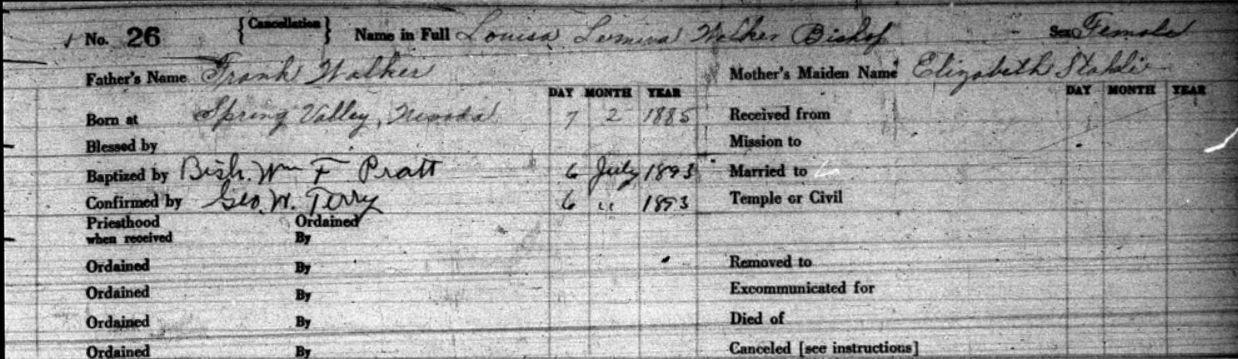 No. 26 { Cancellation } Name in Full Louisa Lumina Walker Bishop Sex Female
Father's Name Frank Walker Mother's Maiden Name Elizabeth Stahli
DAY MONTH YEAR DAY MONTH YEAR
Born at Spring Valley, Nevada 7 2 1885 Received from
Blessed by Mission to
Baptized by Bish. Wm F Pratt 6 July 1893 Married to
Confirmed by Geo. W. Terry 6 " 1893 Temple or Civil
Priesthood Ordained
when received By
Ordained By Removed to
Ordained By Excommunicated for
Ordained By Died of
Ordained By Canceled [see instructions]